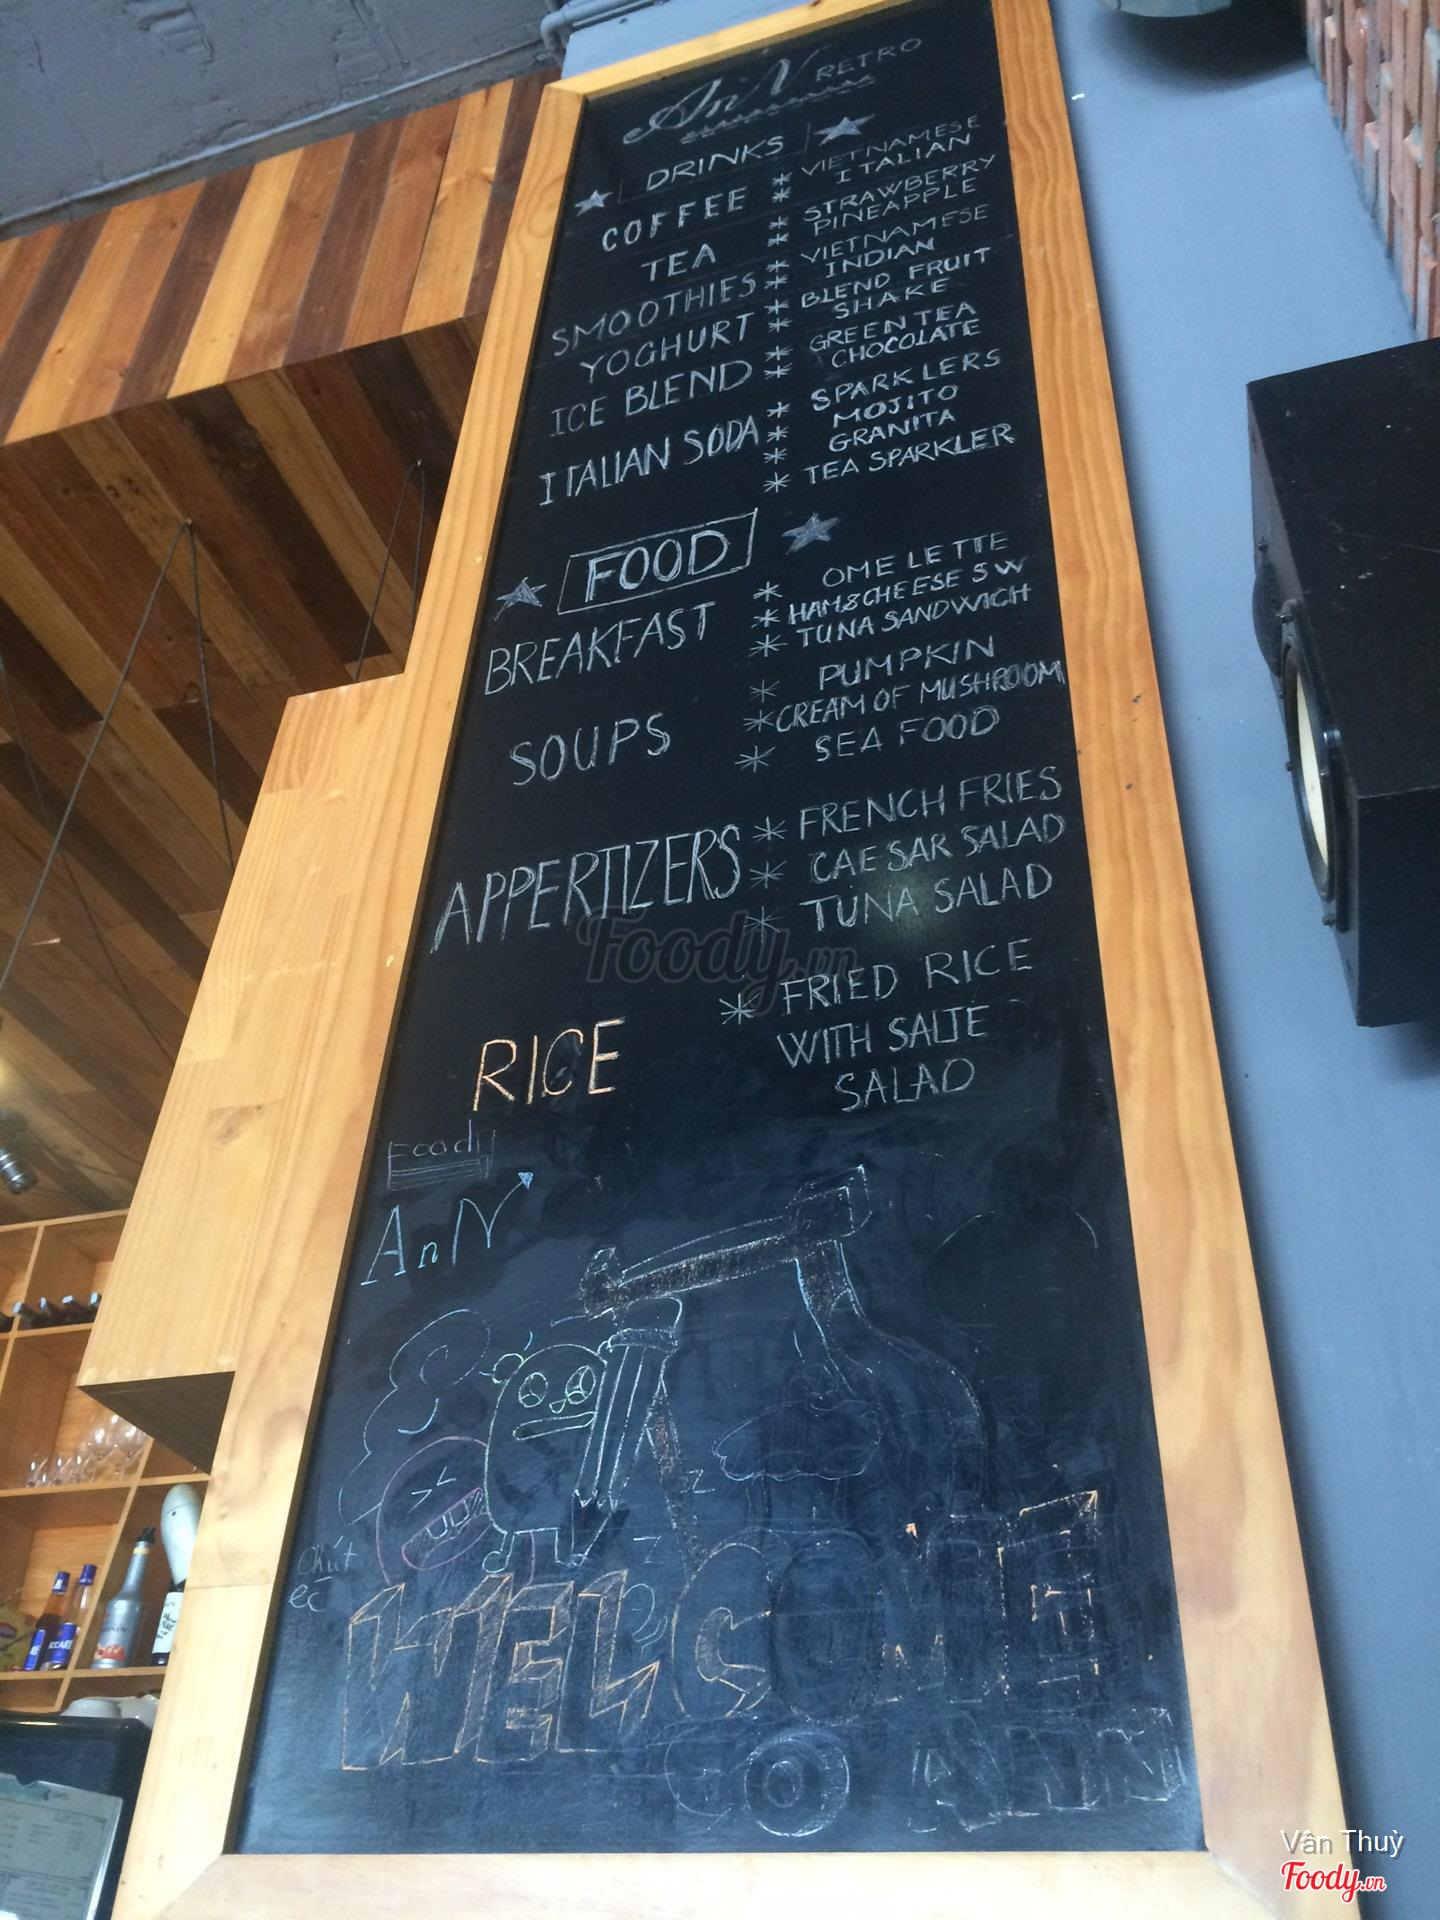 AnN RETRO
DRINKS
COFFEE * VIETNAMESE
* ITALIAN
TEA * STRAWBERRY
* PINEAPPLE
SMOOTHIES * VIETNAMESE
* INDIAN
YOGHURT * BLEND FRUIT
* SHAKE
ICE BLEND * GREEN TEA
* CHOCOLATE
ITALIAN SODA * SPARKLERS
* MOJITO
* GRANITA
* TEA SPARKLER
FOOD
BREAKFAST * OMELETTE
* HAM&CHEESE SW
* TUNA SANDWICH
SOUPS * PUMPKIN
* CREAM OF MUSHROOM
* SEA FOOD
APPERTIZERS * FRENCH FRIES
* CAESAR SALAD
* TUNA SALAD
RICE * FRIED RICE
WITH SALTE
SALAD
Foody
AnN
Z
Z
Chút
éc
WELCOME
ANN
Foody.vn
Vân Thuỳ
Foody.vn